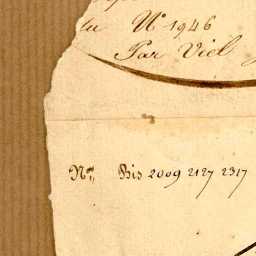 du N° 1946
Par Viel
Nos Bis 2009 2127 2317